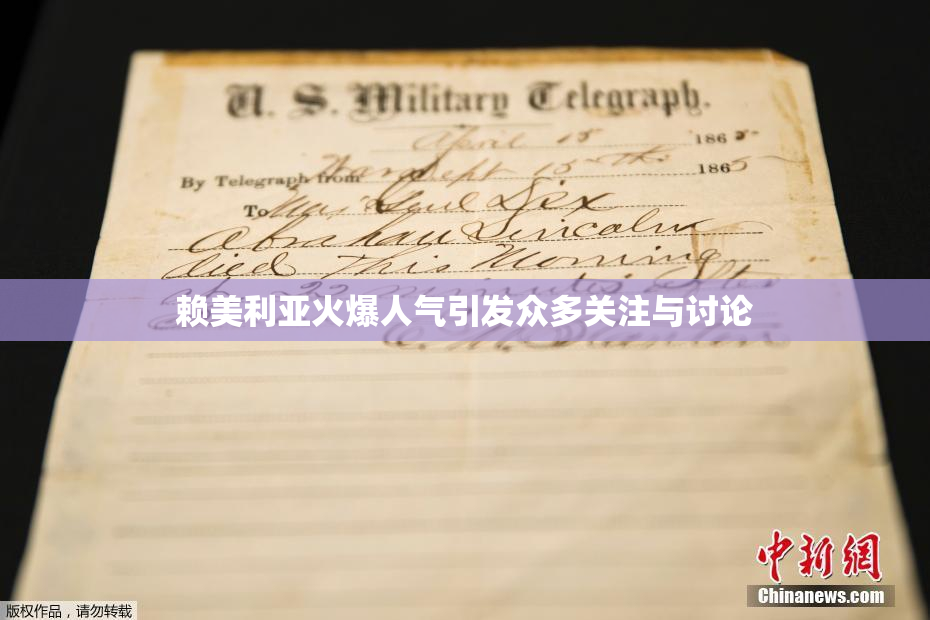 U. S. Military Telegraph.
April 15 1865
By Telegraph from War Dept 15th 1865
To Maj Genl Dix
Abraham Lincoln
died This Morning
at 22 minutes after
赖美利亚火爆人气引发众多关注与讨论
E. M. Stanton
中新网
Chinanews.com
版权作品，请勿转载